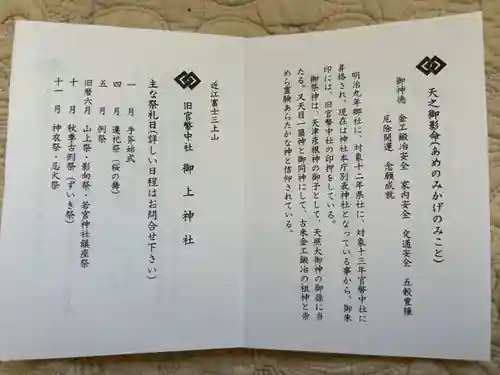 天之御影命(あめのみかげのみこと)
御神徳　金工鍛冶安全　家内安全　交通安全　五穀豊穣
厄除開運　念願成就
明治九年郷社に、対象十二年県社に、対象十三年官幣中社に
昇格され、現在は神社本庁別表神社となっている事から、御朱
印には、旧官幣中社の印押をしている。
御祭神は、天津彦根神の御子として、天照大御神の御孫に当
たる。又天目一箇神と御同神にして、古来金工鍛冶の祖神と崇
められ霊験あらたかな神と信仰されている。
近江富士三上山
旧官幣中社　御上神社
主な祭礼日(詳しい日程はお問合せ下さい)
一　月　手斧始式
四　月　遷祀祭（桜の舞）
五　月　例祭
旧暦六月　山上祭・影向祭、若宮神社鎮座祭
十　月　秋季古例祭（ずいき祭）
十一　月　神衣祭・忌火祭